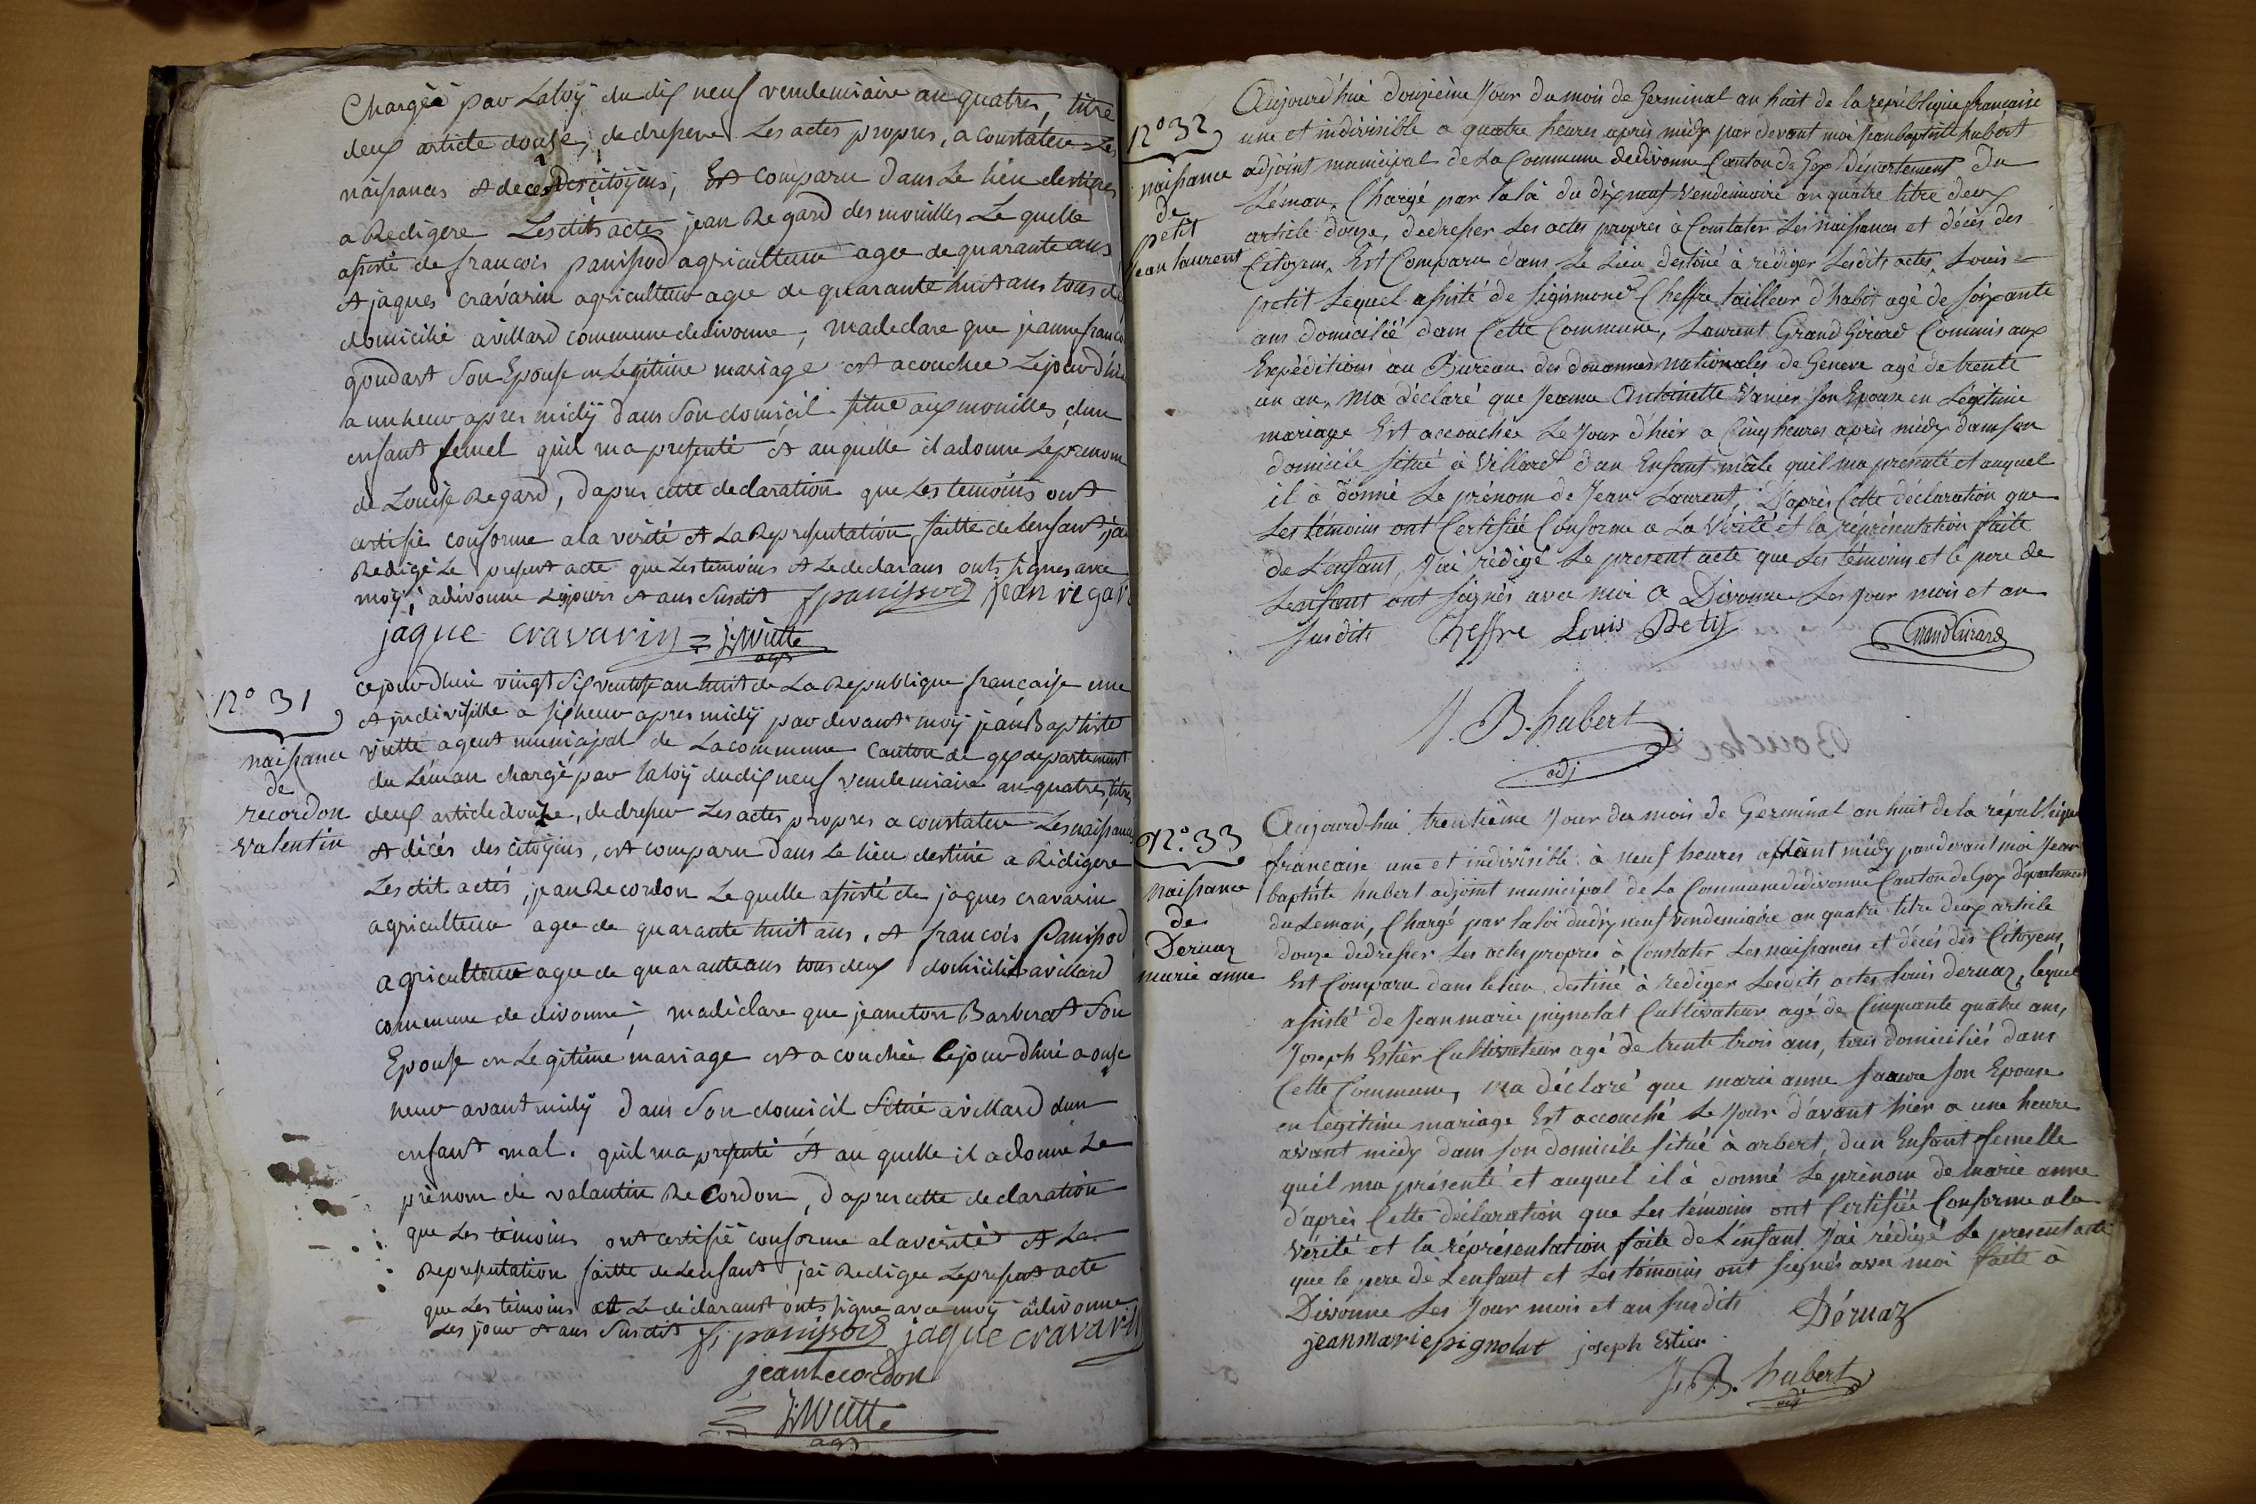 Chargée par Laloÿ du dix neuf vendemiaire an quatres, titre
deux article douse, de dresser Les actes propres, a constater Les
naissances et deces Des citoyens, Est comparu dans Le lieu destines
a Redigere Lesdits actes jean Regard des mouilles Le quelle
assisté de francois panissod agriculteur agee de quarante ans
et jaques cravarin agriculteur agee de quarante huit ans tous de
domicilié avillard commune de divonne, madeclare que jeanne franc
goudart Son Epouse en Legitime mariage est acouchee Lejour d'hi
a un heur apres midÿ dans Son domicil situé aux mouilles, dun
enfant femel quil ma presenté et au quelle il adonne Le prenom
de Louise Regard, dapres cette declaration que Les temoins ont
certifié conforme ala verité et La Representation faitte de lenfant, jai
Redigé Le present acte que Les temoins et Le declarans onts signes avec
moÿ, adivonne Lejours et ans Susdit fpanissod jean regar
jaque cravarin JWiitte
agt
N.o 31
naissance
de
recordon
valentin
cejourdhui vingt six ventose an huit de La Republique française une
et jndivisible a six heur apres midÿ par devant moÿ jean Baptiste
viutte agent municipal de Lacommune Canton de gex departement
du Léman chargé par laloÿ dudix neuf vendemiaire an quatres, titre
deux article douze, de dresser Les actes propres a constater Les naissance
et décés des citoÿens, est comparu dans Le lieu destiné a Rédigere
Les dit actés, jean Recordon Le quelle assisté de jaques cravarin
agriculteur agee de quarante huit ans, et francois Panissod
agriculteur agee de quarante ans tous deux domicilié avillard
commune de divonne, madéclare que jeaneton Barberat Son
Epouse en Legitime mariage est acouchée Cejourdhui a onse
heur avant midÿ dans Son domicil Situé avillard dun
enfant mal. quil ma presenté et au quelle il adonné Le
prénom de valantin Recordon, dapres cette declaration
que Les témoins ont certifié conforme alavérité et La
Representation faitte de Lenfant jai Redigee Lepresent acte
que Les témoins et Le déclarant onts signe avec moÿ adivonne
Les jour et ans Susdit fs panissod jaque cravarin
jean Recordon
JWiitte
agt
N.o 32
naissance
de
petit
jean laurent
Aujourd'hui douzième Jour du mois de Germinal an huit de la république française
une et indivisible a quatre heures après midy par devant moi Jean baptiste hubért
adjoint municipal de la Commune dedivonne Canton de Gex département du
Léman, Chargé par la loi du dix neuf Vendémiaire an quatre titre deux
article douze, dedresser Les actes propres à Constater Les naissances et décès des
Citoyens, Est Comparu dans Le Lieu destiné à rédiger Lesdits actes, Louis
petit Lequel assisté de Sigismond Cheffre tailleur d'habit agé de Soixante
ans domicilié dans Cette Commune, Laurent Grand Girard Commis aux
Expéditions au Bureau des douannes nationales de Geneve agé de trente
un an, Ma déclaré que Jeanne Antoinette Vanier Son Epouse en Légitime
mariage Est accouchée Le Jour d'hier a Cinq heures après midy dans son
domicile situé à Villard d'un Enfant mâle quil ma presenté et auquel
il à donné Le prénom de Jean Laurent. D'après Cette déclaration que
Les témoins ont Certifiée Conforme a La Vérité et la réprésentation faite
de L'enfant, J'ai rédigé Le present acte que Les témoins et le pere de
Lenfant ont Signés avec moi a Divonne Les Jour mois et an
susdits Cheffre Louis Petit GrandGirard
J. B. hubert
adj
N.o 33
naissance
de
Deruaz
marie anne
Aujourd'hui trentième Jour du mois de Germinal an huit de la république
francaise une et indivisible à neuf heures avant midy pardevant moi Jean
baptiste hubert adjoint municipal de La Commune dedivonne Canton de Gex département
du Leman, Chargé par la loi dudix neuf vendemiaire an quatre titre deux article
douze dedresser Les actes propres à Constater Les naissances et décès des Citoyens,
Est Comparu dans le lieu destiné à rédiger Lesdits actes Louis deruaz, lequel
assisté de Jean marie pignolat Cultivateur agé de Cinquante quatre ans,
Joseph Estier Cultivateur agé de trente trois ans, tous domiciliés dans
Cette Commune, ma déclaré que marie anne son Epouse
en légitime mariage Est accouché Le Jour d'avant hier a une heure
avant midy dans son domicile situé à arbert, d'un Enfant femelle
quil ma présenté et auquel il à donné Le prénom de marie anne
d'après Cette déclaration que Les témoins ont Certifiée Conforme a la
vérité et la réprésentation faite de L'enfant J'ai rédigé Le present acte
que le pere de Lenfant et Les témoins ont Signés avec moi faite à
Divonne Les Jour mois et an susdits Déruaz
jean marie pignolat joseph Estier
J. B. hubert
adj